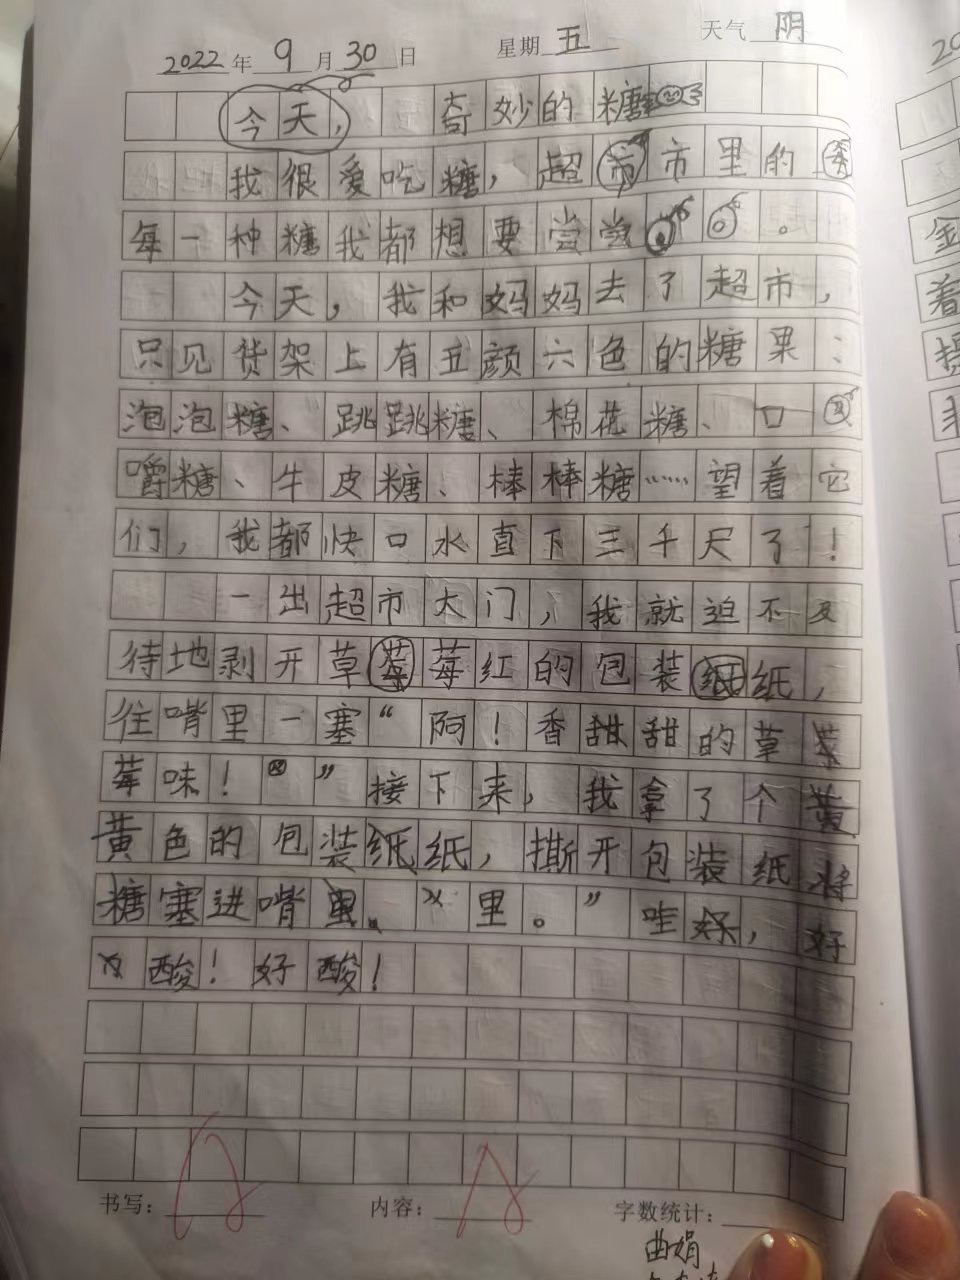 2022年9月30日 星期五 天气阴
今天, 奇妙的糖
我很爱吃糖，超市市里的
每一种糖我都想要尝尝。
今天，我和妈妈去了超市，
只见货架上有五颜六色的糖果：
泡泡糖、跳跳糖、棉花糖、口
嚼糖、牛皮糖、棒棒糖……望着它
们，我都快口水直下三千尺了！
一出超市大门，我就迫不及
待地剥开草莓莓红的包装纸纸，
往嘴里一塞“阿！香甜甜的草
莓味！”接下来，我拿了个黄
黄色的包装纸纸，撕开包装纸将
糖塞进嘴里。里。”哇好，好
酸！好酸！
书写： A 内容： A 字数统计：
曲娟
20
金
着